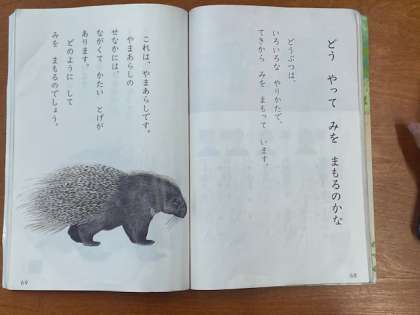 どう やって みを まもるのかな
どうぶつは、
いろいろな やりかたで、
てきから みを まもって います。
68
これは、やまあらしです。
やまあらしの
せなかには、
ながくて かたい とげが
あります。
どのように して
みを まもるのでしょう。
69